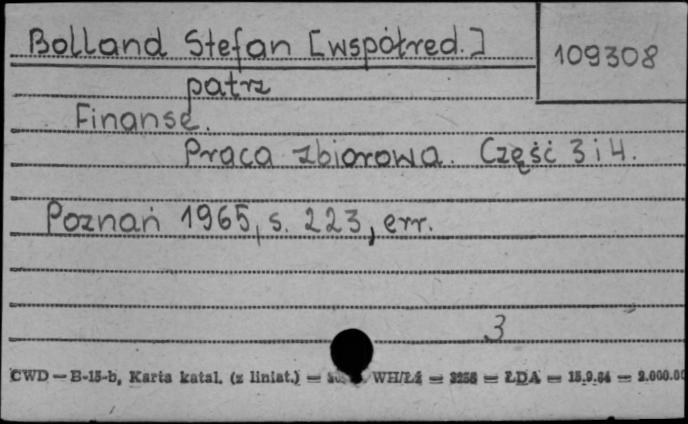 Bolland Stefan [współred.]
109308
patrz
Finanse.
Praca zbiorowa. Część 3 i 4.
Poznań 1965, s. 223, err.
3
CWD — B-15-b, Karta katal. (z liniat.) — WH/Łź — 3256 — ŁDA — 15.9.64 — 2.000.00